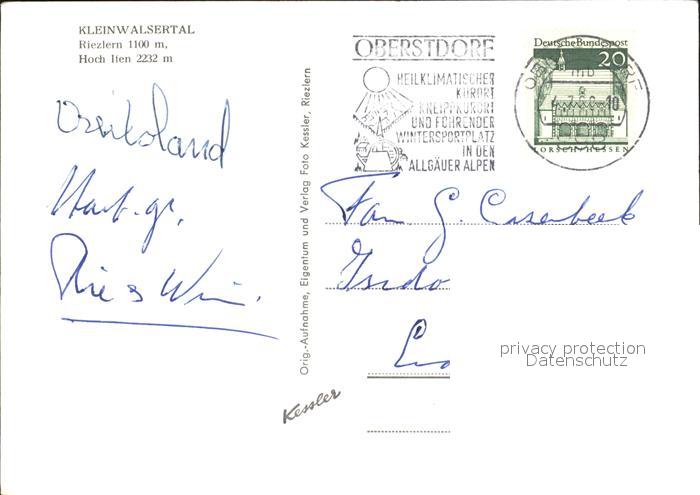 KLEINWALSERTAL
Riezlern 1100 m,
Hoch Ifen 2232 m
Hart. gr.
Orig.-Aufnahme, Eigentum und Verlag Foto Kessler, Riezlern
Kessler
OBERSTDORF
HEILKLIMATISCHER
KURORT
KNEIPPKURORT
UND FÜHRENDER
WINTERSPORTPLATZ
IN DEN
ALLGÄUER ALPEN
Deutsche Bundespost
20
LORSCH/HESSEN
Fam. G. Casenbeek
privacy protection
Datenschutz